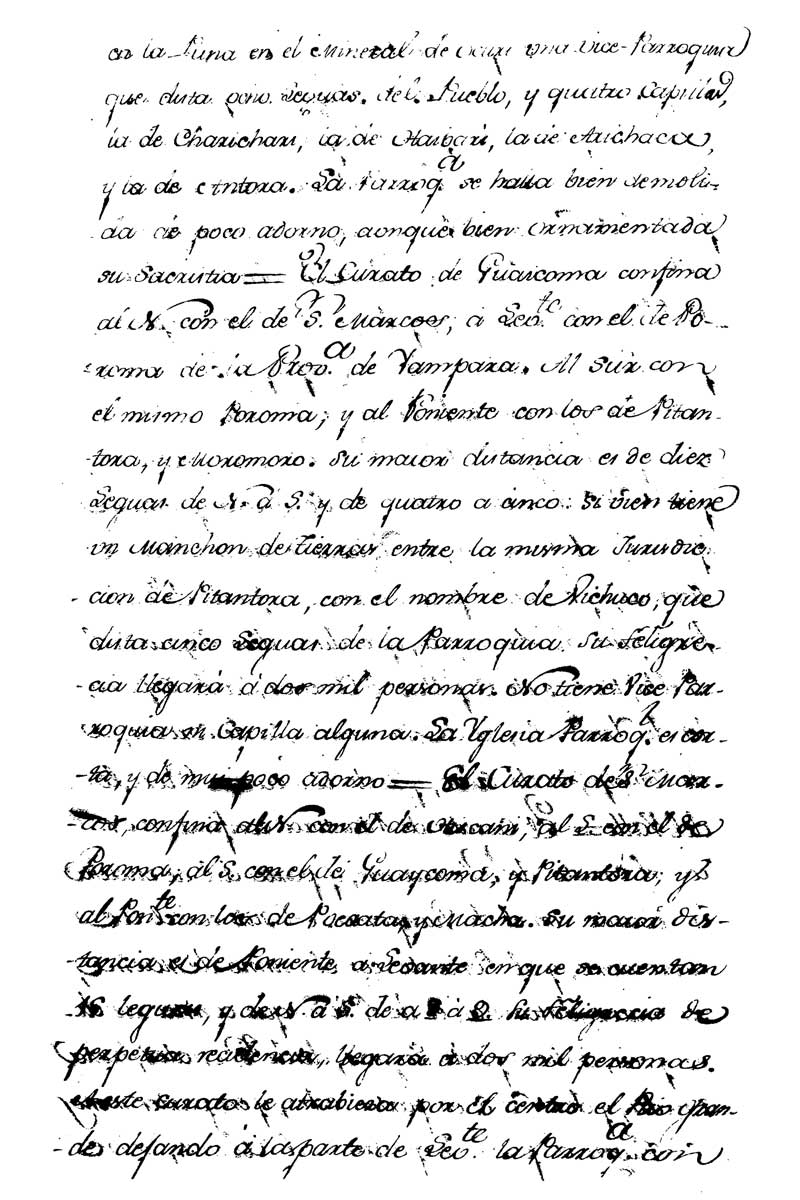 en la Puna en el Mineral de Ocuri una Vice-Parroquia
que dista ocho Leguas. del. Pueblo, y quatro Capillas,
la de Charichari, la de Marbari, la de Arichaca,
y la de Antora. La Parroq.a se halla bien demoli-
da de poco adorno, aonque bien ornamentada
su Sacristia = El Curato de Guaicoma confina
al N. con el de S.n Marcos, a Lev.te con el de Po-
roma de la Prov.a de Yampara. Al Sur con
el mismo Poroma; y al Poniente con los de Pitan-
tora, y Moromoro. Su maior distancia es de diez
Leguas de N. a S. y de quatro a cinco: si bien tiene
un Manchon de tierras entre la misma Jurisdic-
cion de Pitantora, con el nombre de Pichuco, que
dista cinco Leguas de la Parroquia. Su feligre-
cia llegará á dos mil personas. No tiene Vice Par-
roquia ni Capilla alguna. La Yglesia Parroq.l es cor-
ta, y de mui poco adorno = El Curato de S.n Mar-
cos, confina al N. con el de al L. con el de
Poroma, al S. con el de Guaycoma, y Pitantora, y
al Pon.te con los de Pocoata, y Macha. Su maior dis-
tancia es de Poniente a Levante en que se cuentan
16 leguas, y de N. á S. de a á Su feligrecia de
perpetua recidencia, llegará á dos mil personas.
A este curato le atrabieza por el centro el Rio Gran-
de, dejando á la parte de Lev.te la Parroq.a con